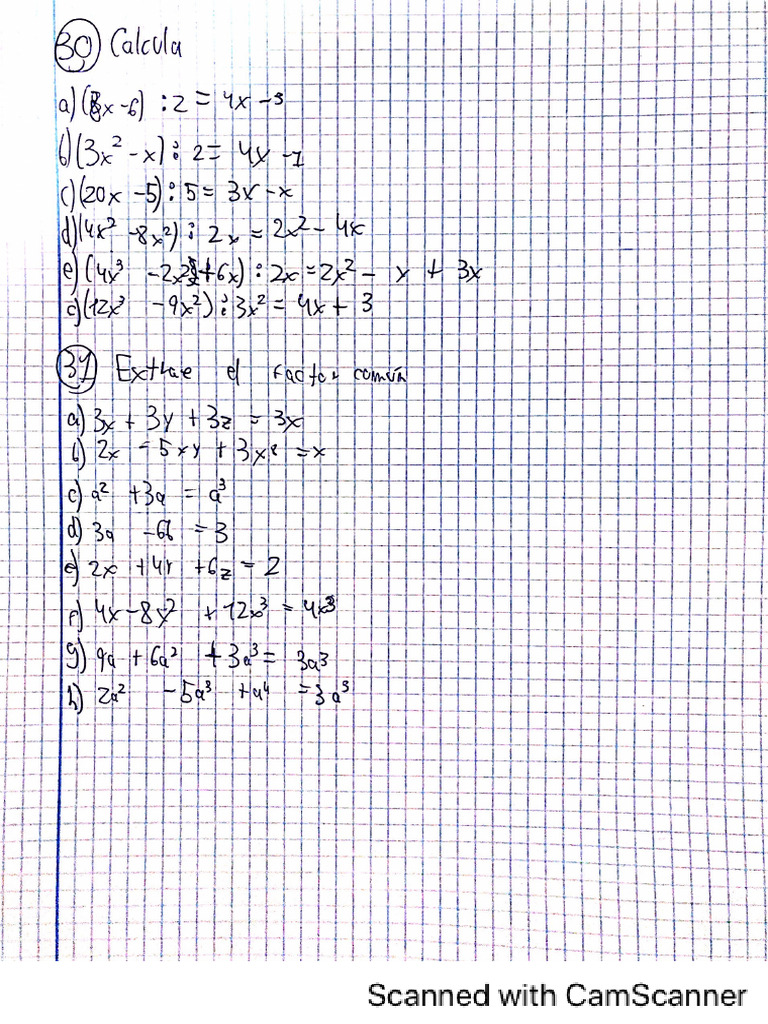 30 Calcula
a) (8x - 6) : 2 = 4x - 3
b) (3x² - x) : 2 = 4x - 1
c) (20x - 5) : 5 = 3x - x
d) (4x² - 8x²) : 2x = 2x² - 4x
e) (4x³ - 2x² + 6x) : 2x = 2x² - x + 3x
g) (12x³ - 9x²) : 3x² = 4x + 3
31 Extrae el factor común
a) 3x + 3y + 3z = 3x
b) 2x - 5xy + 3x² = x
c) a² + 3a = a³
d) 3a - 6b = 3
e) 2x + 4y + 6z = 2
f) 4x - 8x² + 12x³ = 4x³
g) 9a + 6a² + 3a³ = 3a³
h) 2a² - 5a³ + a⁴ = 3a³
Scanned with CamScanner